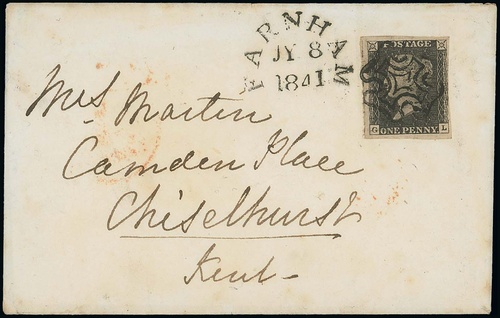 FARNHAM
JY 8
1841
POSTAGE
G ONE PENNY L
Mrs Martin
Camden Place
Chiselhurst
Kent